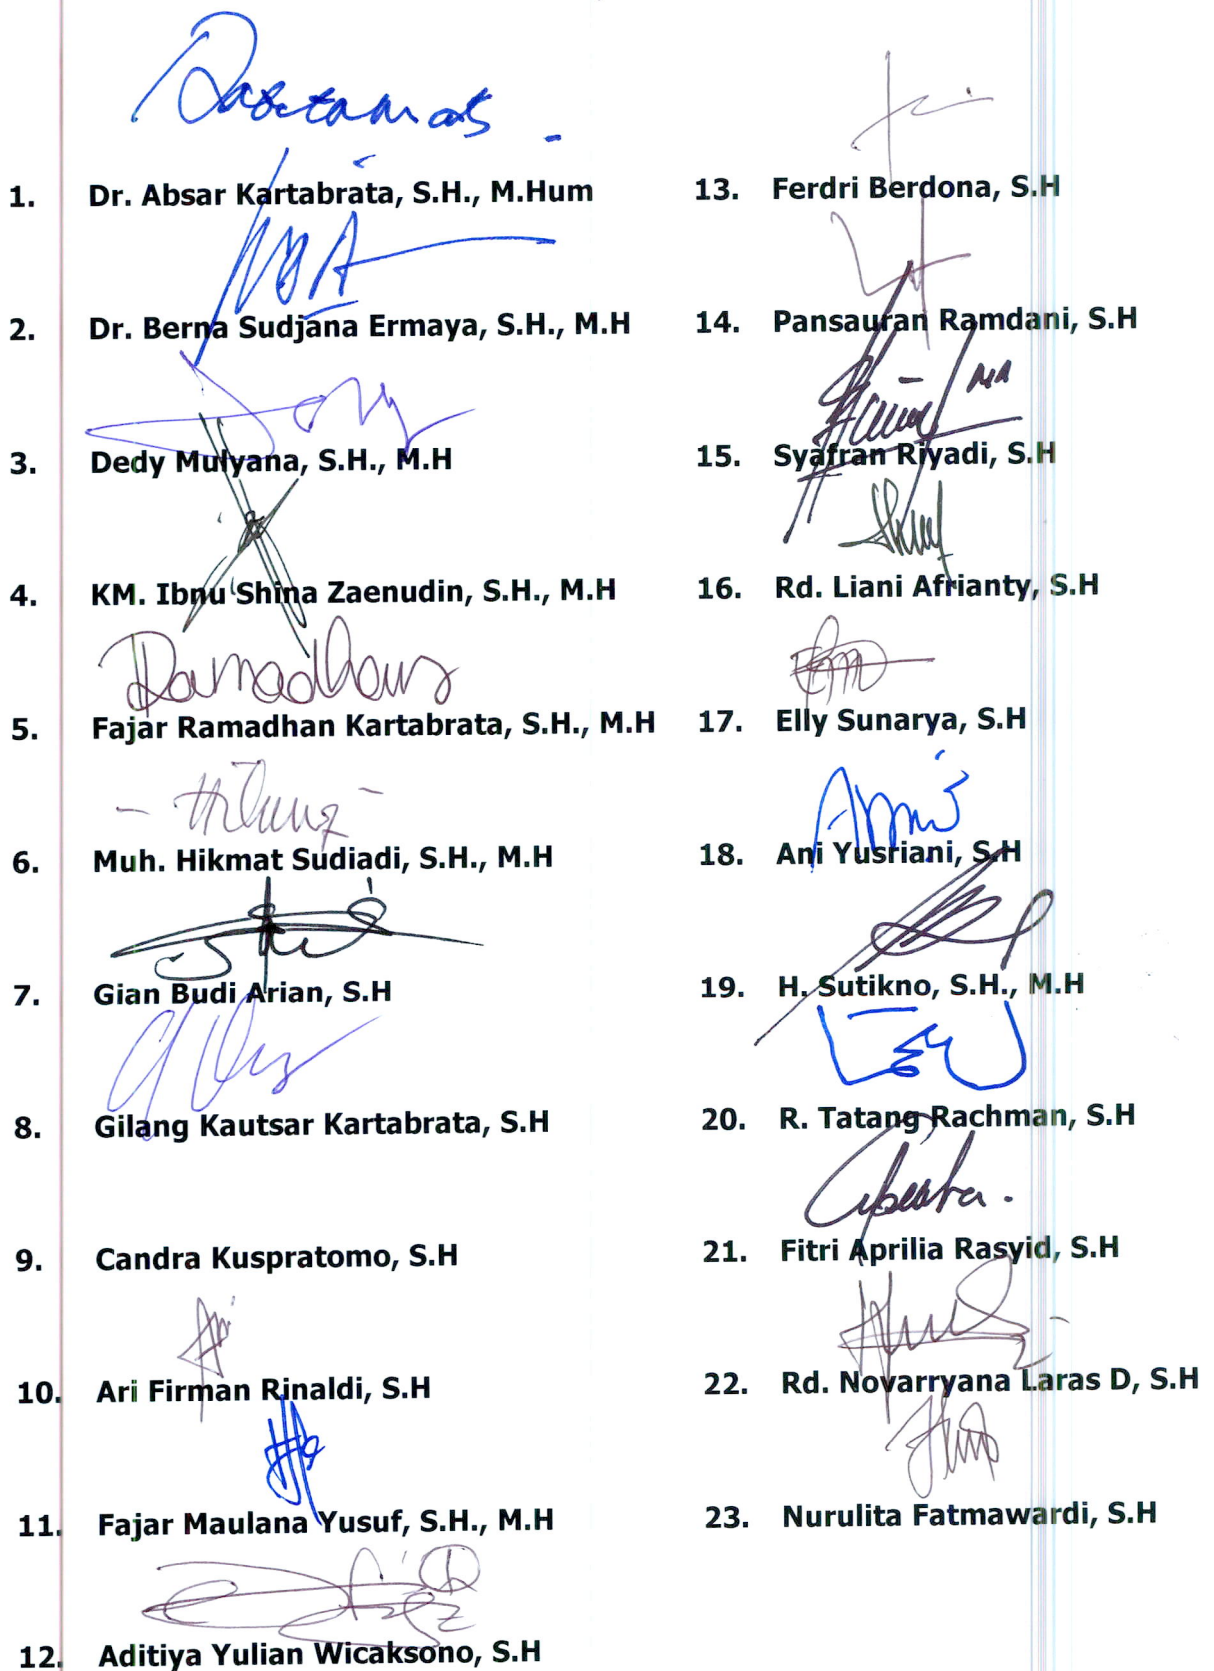 1. Dr. Absar Kartabrata, S.H., M.Hum
2. Dr. Berna Sudjana Ermaya, S.H., M.H
3. Dedy Mulyana, S.H., M.H
4. KM. Ibnu Shina Zaenudin, S.H., M.H
Ramadhan
5. Fajar Ramadhan Kartabrata, S.H., M.H
6. Muh. Hikmat Sudiadi, S.H., M.H
7. Gian Budi Arian, S.H
8. Gilang Kautsar Kartabrata, S.H
9. Candra Kuspratomo, S.H
10. Ari Firman Rinaldi, S.H
11. Fajar Maulana Yusuf, S.H., M.H
12. Aditiya Yulian Wicaksono, S.H
13. Ferdri Berdona, S.H
14. Pansauran Ramdani, S.H
15. Syafran Riyadi, S.H
16. Rd. Liani Afrianty, S.H
17. Elly Sunarya, S.H
18. Ani Yusriani, S.H
19. H. Sutikno, S.H., M.H
20. R. Tatang Rachman, S.H
21. Fitri Aprilia Rasyid, S.H
22. Rd. Novarryana Laras D, S.H
23. Nurulita Fatmawardi, S.H